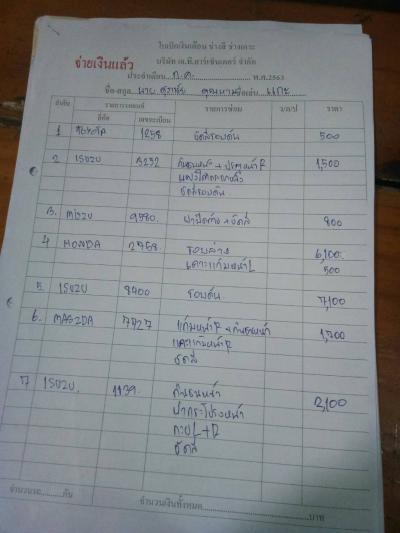 ใบเบิกเงินเดือน ช่างสี ช่างเคาะ
จ่ายเงินแล้ว บริษัท เค.ที.คาร์เซ็นเตอร์ จำกัด
ประจำเดือน ก.ค. พ.ศ.2563
ชื่อ-สกุล นาย ชื่อเล่น แกะ
ลำดับ รายการรถยนต์ รายการซ่อม ว/ด/ป ราคา
ยี่ห้อ เลขทะเบียน
1 TOYOTA 1258 ขัดสีรอบคัน 500
2 ISUZU 5232 กันชนหน้า + ประตูหน้า R 1,500
ขัดสีรอบคัน
3. MISZU 9580 + ขัดสี 800
4 HONDA 2768 รอบล่าง 6,100
เคาะแก้มหน้า L 500
5 ISUZU 8400 รอบคัน 7,100
6. MASZDA 7727 แก้มหน้า R + กันชนหน้า 1,700
เคาะแก้มหน้า R
ขัดสี
7 ISUZU 1139 กันชนหน้า 2,100
ฝากระโปรงหน้า
L+R
ขัดสี
จำนวนรถ คัน จำนวนเงินทั้งหมด บาท